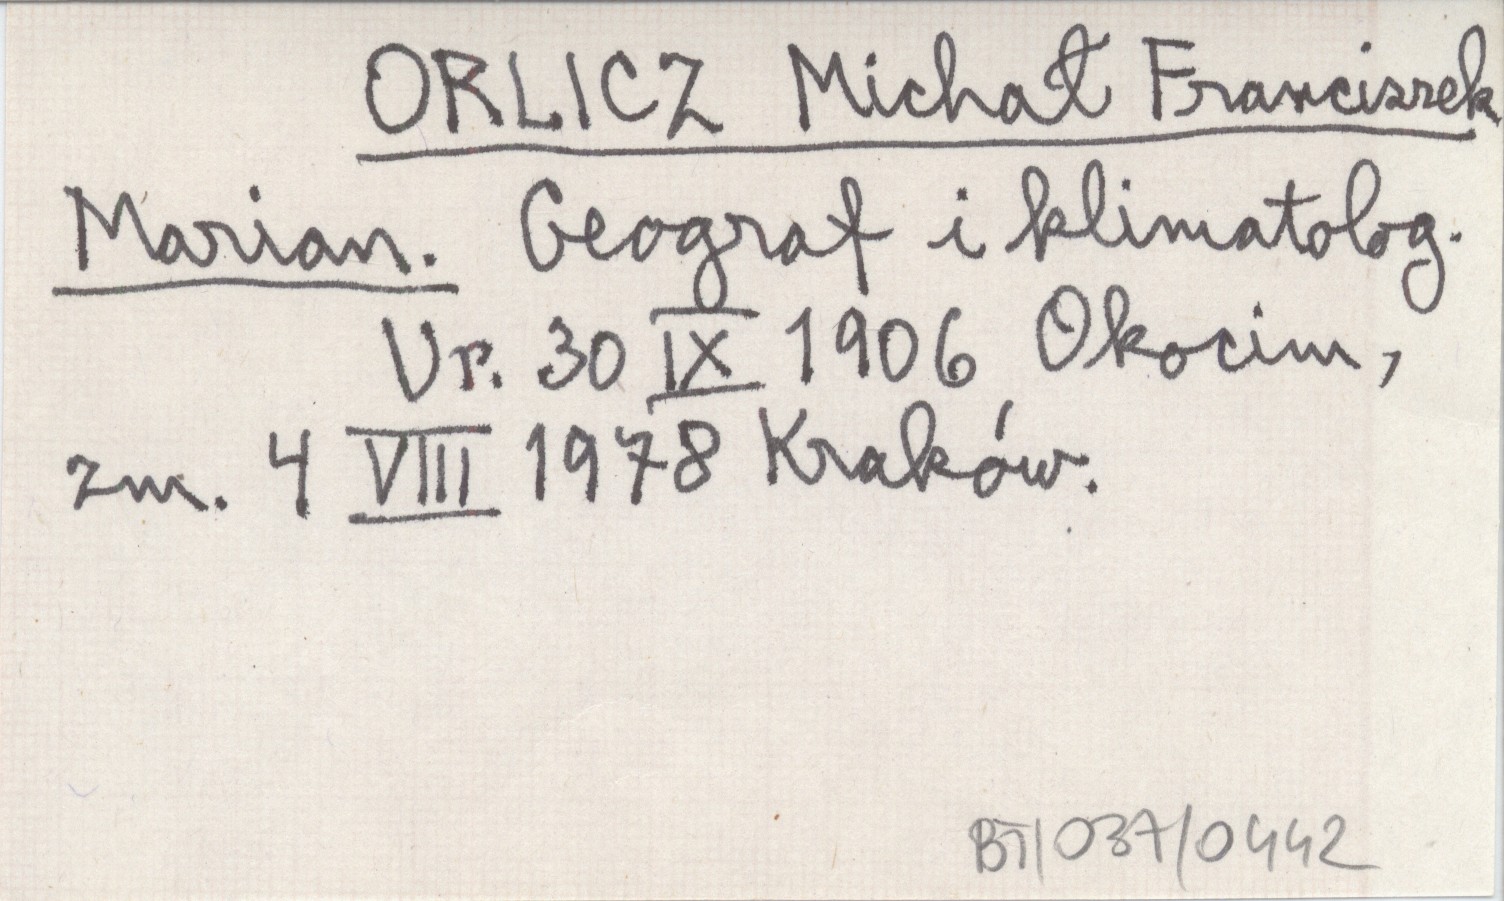 ORLICZ Michał Franciszek
Marian. Geograf i klimatolog.
Ur. 30 IX 1906 Okocim,
zm. 4 VIII 1978 Kraków.
BT/037/0442